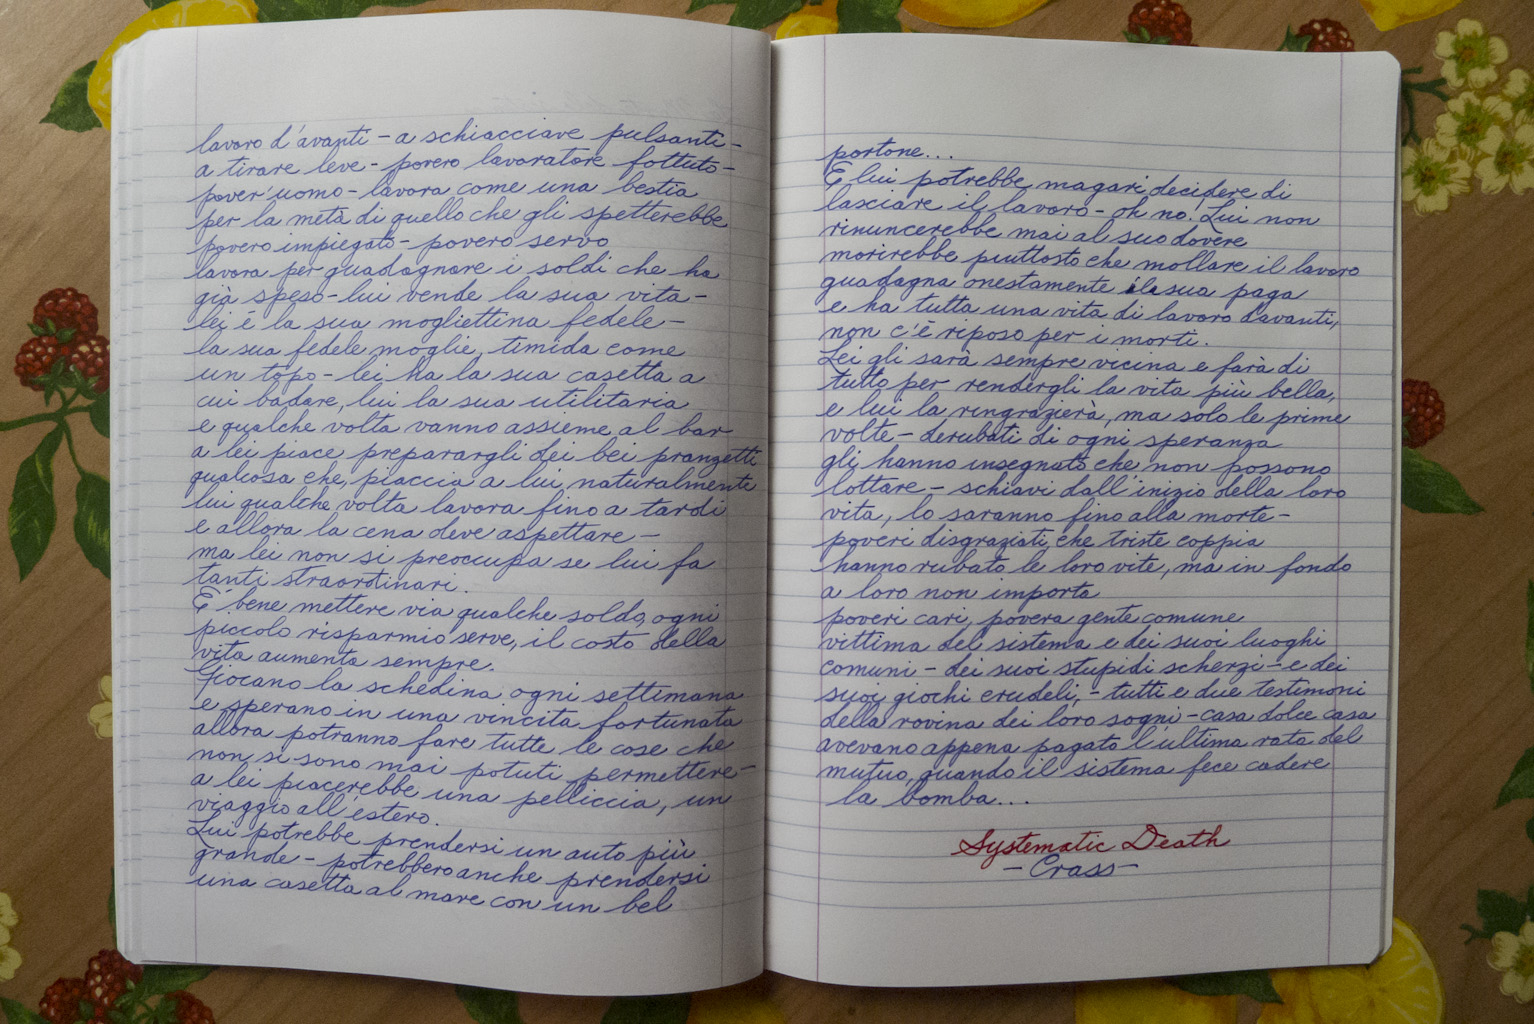 lavoro d'avanti - a schiacciare pulsanti -
a tirare leve - povero lavoratore fottuto -
pover'uomo - lavora come una bestia
per la metà di quello che gli spetterebbe
povero impiegato - povero servo
lavora per guadagnare i soldi che ha
già speso - lui vende la sua vita -
lei é la sua mogliettina fedele -
la sua fedele moglie, timida come
un topo - lei ha la sua casetta a
cui badare, lui la sua utilitaria
e qualche volta vanno assieme al bar
a lei piace preparargli dei bei pranzetti
qualcosa che piaccia a lui, naturalmente
lui qualche volta lavora fino a tardi
e allora la cena deve aspettare -
ma lei non si preoccupa se lui fa
tanti straordinari.
E' bene mettere via qualche soldo, ogni
piccolo risparmio serve, il costo della
vita aumenta sempre.
Giocano la schedina ogni settimana
e sperano in una vincita fortunata
allora potranno fare tutte le cose che
non si sono mai potuti permettere -
a lei piacerebbe una pelliccia, un
viaggio all'estero.
Lui potrebbe prendersi un auto più
grande - potrebbero anche prendersi
una casetta al mare con un bel
portone...
E lui potrebbe magari decidere di
lasciare il lavoro - oh no. Lui non
rinuncerebbe mai al suo dovere
morirebbe piuttosto che mollare il lavoro
guadagna onestamente la sua paga
e ha tutta una vita di lavoro d'avanti,
non c'è riposo per i morti.
Lei gli sarà sempre vicina e farà di
tutto per rendergli la vita più bella,
e lui la ringrazierà, ma solo le prime
volte - derubati di ogni speranza
gli hanno insegnato che non possono
lottare - schiavi dall'inizio della loro
vita, lo saranno fino alla morte -
poveri disgraziati, che triste coppia
hanno rubato le loro vite, ma in fondo
a loro non importa
poveri cari, povera gente comune
vittima del sistema e dei suoi luoghi
comuni - dei suoi stupidi scherzi - e dei
suoi giochi crudeli, - tutti e due testimoni
della rovina dei loro sogni - casa dolce casa
avevano appena pagato l'ultima rata del
mutuo, quando il sistema fece cadere
la bomba...
Systematic Death
- Crass -